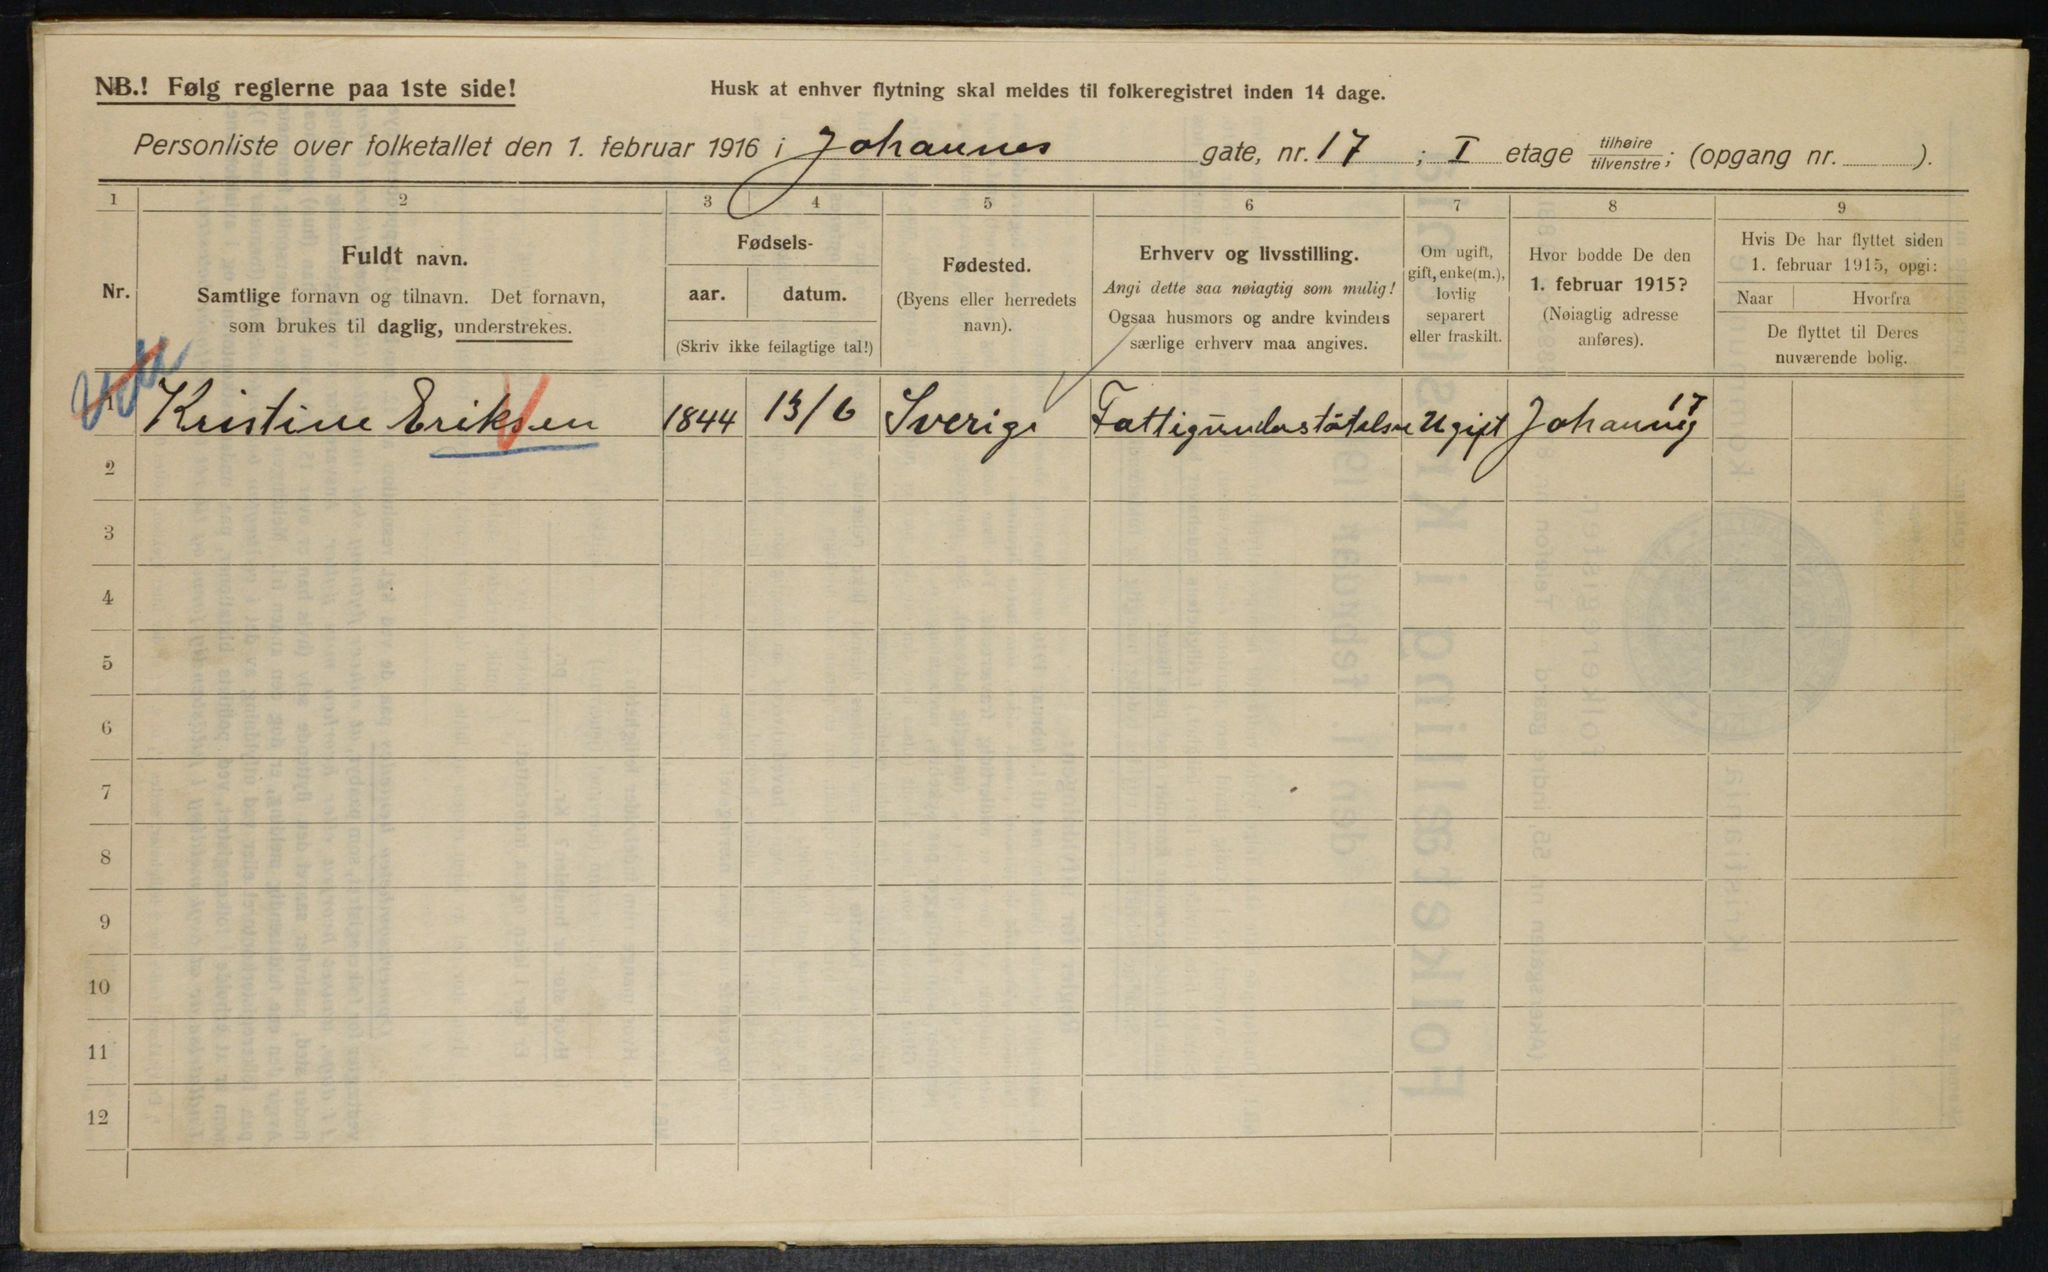 NB.! Følg reglerne paa 1ste side!
Husk at enhver flytning skal meldes til folkeregistret inden 14 dage.
Personliste over folketallet den 1. februar 1916 i Johannes gate, nr. 17 ; I etage tilhøire/tilvenstre; (opgang nr. ).
1 2 3 4 5 6 7 8 9
Nr.
Fuldt navn.
Samtlige fornavn og tilnavn. Det fornavn,
som brukes til daglig, understrekes.
Fødsels-
aar. datum.
(Skriv ikke feilagtige tal!)
Fødested.
(Byens eller herredets
navn).
Erhverv og livsstilling.
Angi dette saa nøiagtig som mulig!
Ogsaa husmors og andre kvinders
særlige erhverv maa angives.
Om ugift,
gift, enke(m.),
lovlig
separert
eller fraskilt.
Hvor bodde De den
1. februar 1915?
(Nøiagtig adresse
anføres).
Hvis De har flyttet siden
1. februar 1915, opgi:
Naar Hvorfra
De flyttet til Deres
nuværende bolig.
1 Kristine Eriksen 1844 13/6 Sverige Fattigunderstøtelse Ugift Johannesg 17
2
3
4
5
6
7
8
9
10
11
12